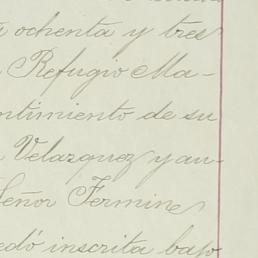 ochenta y tres
Refugio Ma-
ntimiento de su
Velazquez y au-
Señor Fermin
edó inscrita bajo